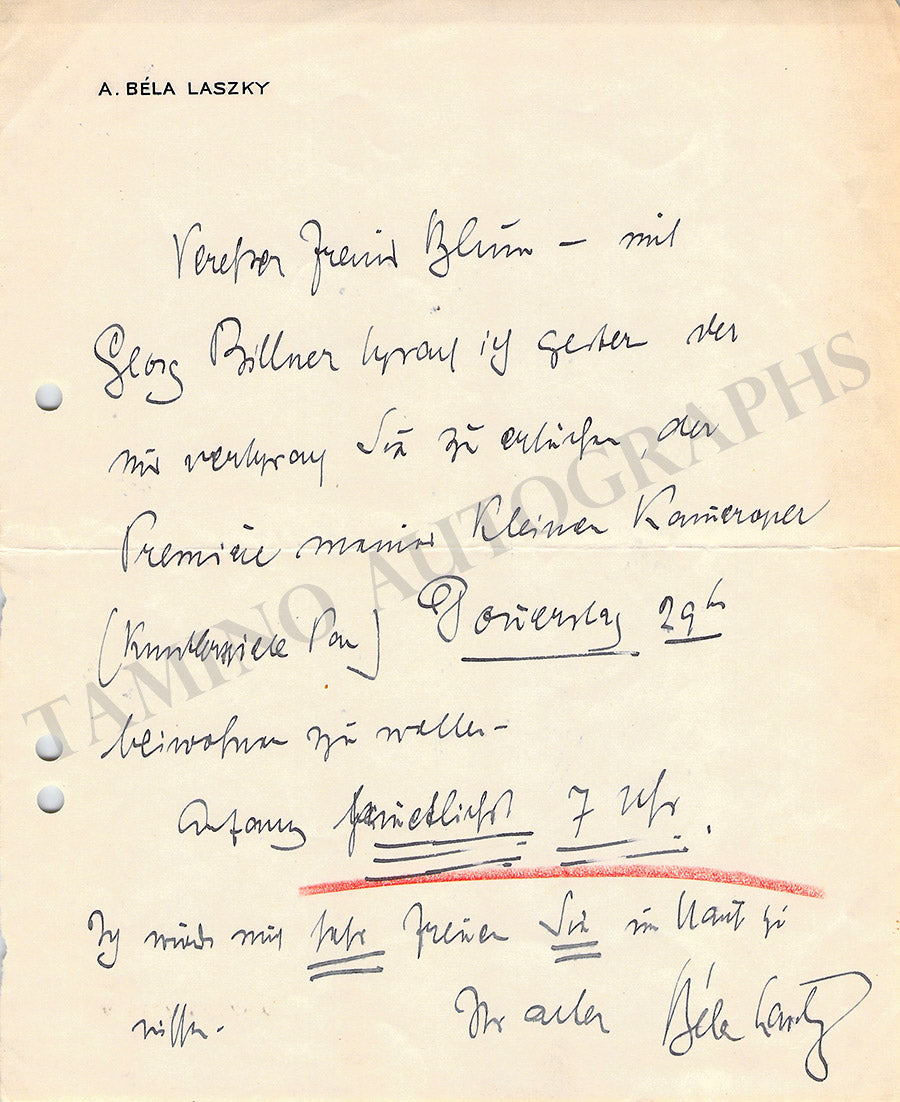 A. BÉLA LASZKY
Verehrter Freund Blum – mit
Georg Billner sprach ich gestern der
mir versprach Sie zu ersuchen, der
Première meiner kleinen Kameroper
( ) Donnerstag 29ten
beiwohnen zu wollen –
Anfang pünktlichst 7 Uhr.
Ich würde mich sehr freuen Sie im Haus zu
wissen.
Ihr alter Béla Laszky
TAMINO AUTOGRAPHS